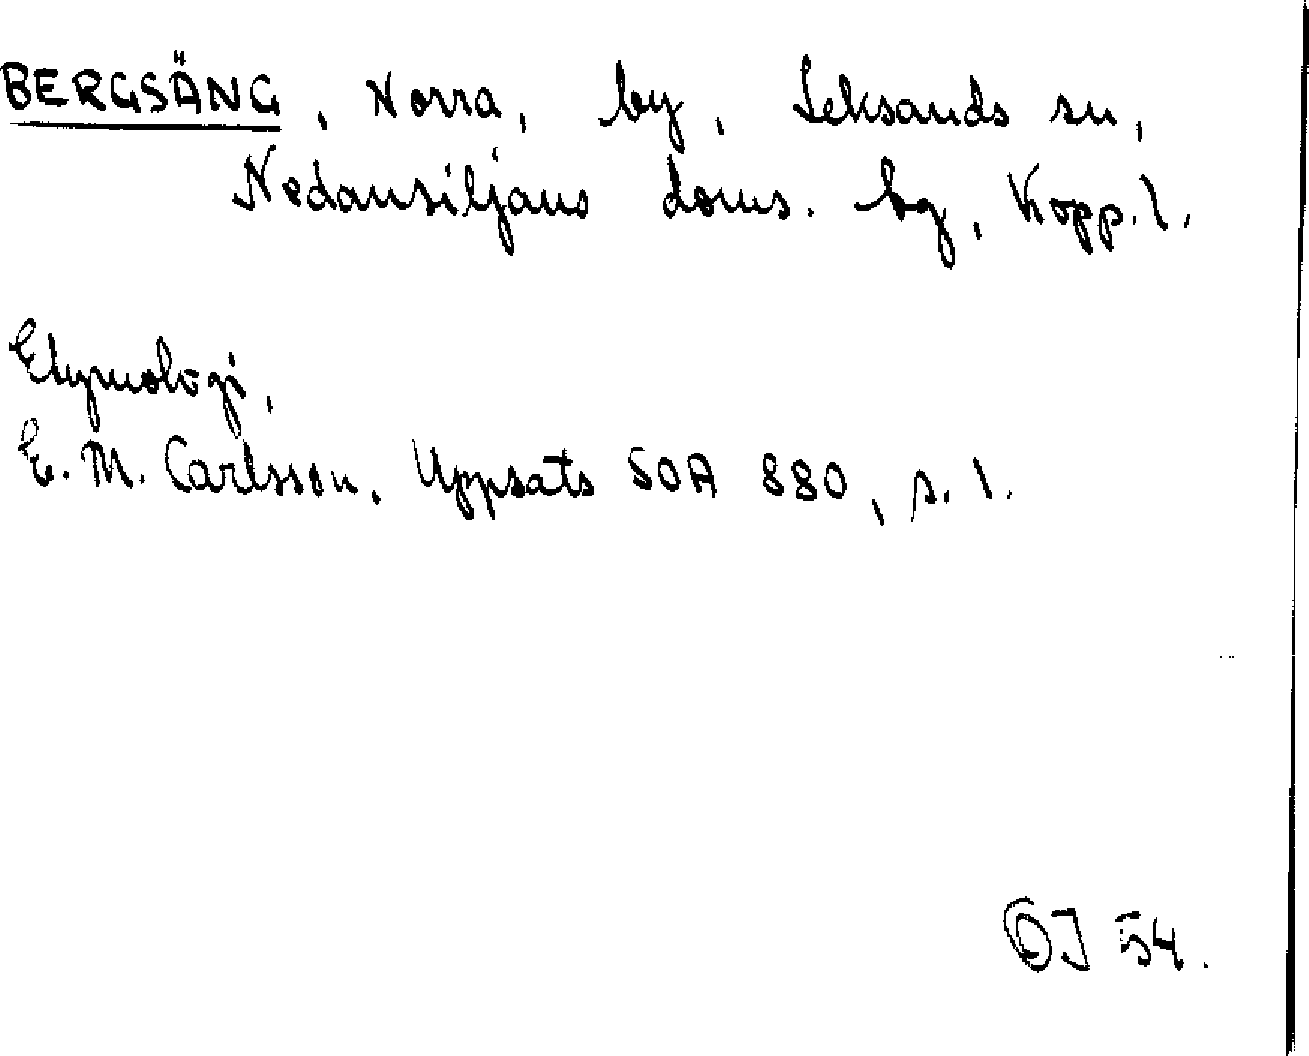 BERGSÄNG, Norra, by, Leksands sn,
Nedansiljans doms. hg, Kopp. l.
Etymologi,
E. M. Carlsson. Uppsats SOA 880, s. 1.
OJ 54.